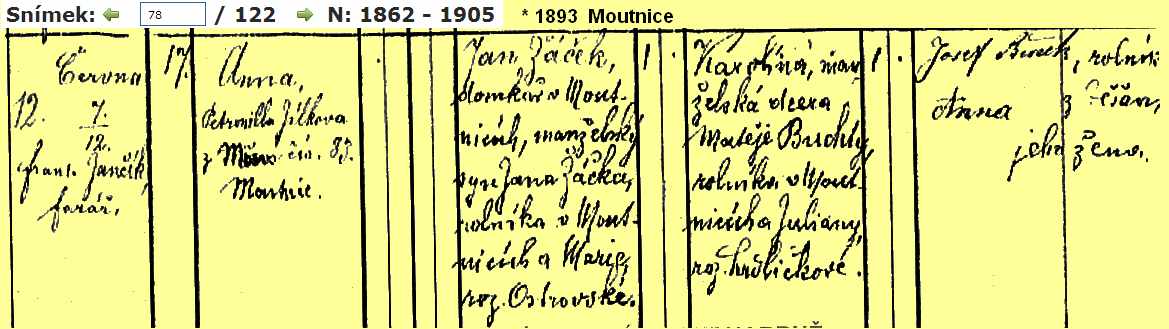 Snímek: 78 / 122 N: 1862 - 1905 * 1893 Moutnice
Června
12. 7.
12.
frant. Jančík,
farář.
17.
Anna,
Petronilla Jílkova
z čís. 85.
Moutnic.
Jan Žáček,
domkář v Mout-
nicích, manželský
syn Jana Žáčka,
rolníka v Mout-
nicích a Marie,
roz. Ostrovské.
1
Karolina, man-
želská dcera
Matěje Buchty,
rolníka v Mout-
nicích a Juliany,
roz. Hrbičkové.
1
Josef, rolník
Anna z Těšan,
jeho žena.